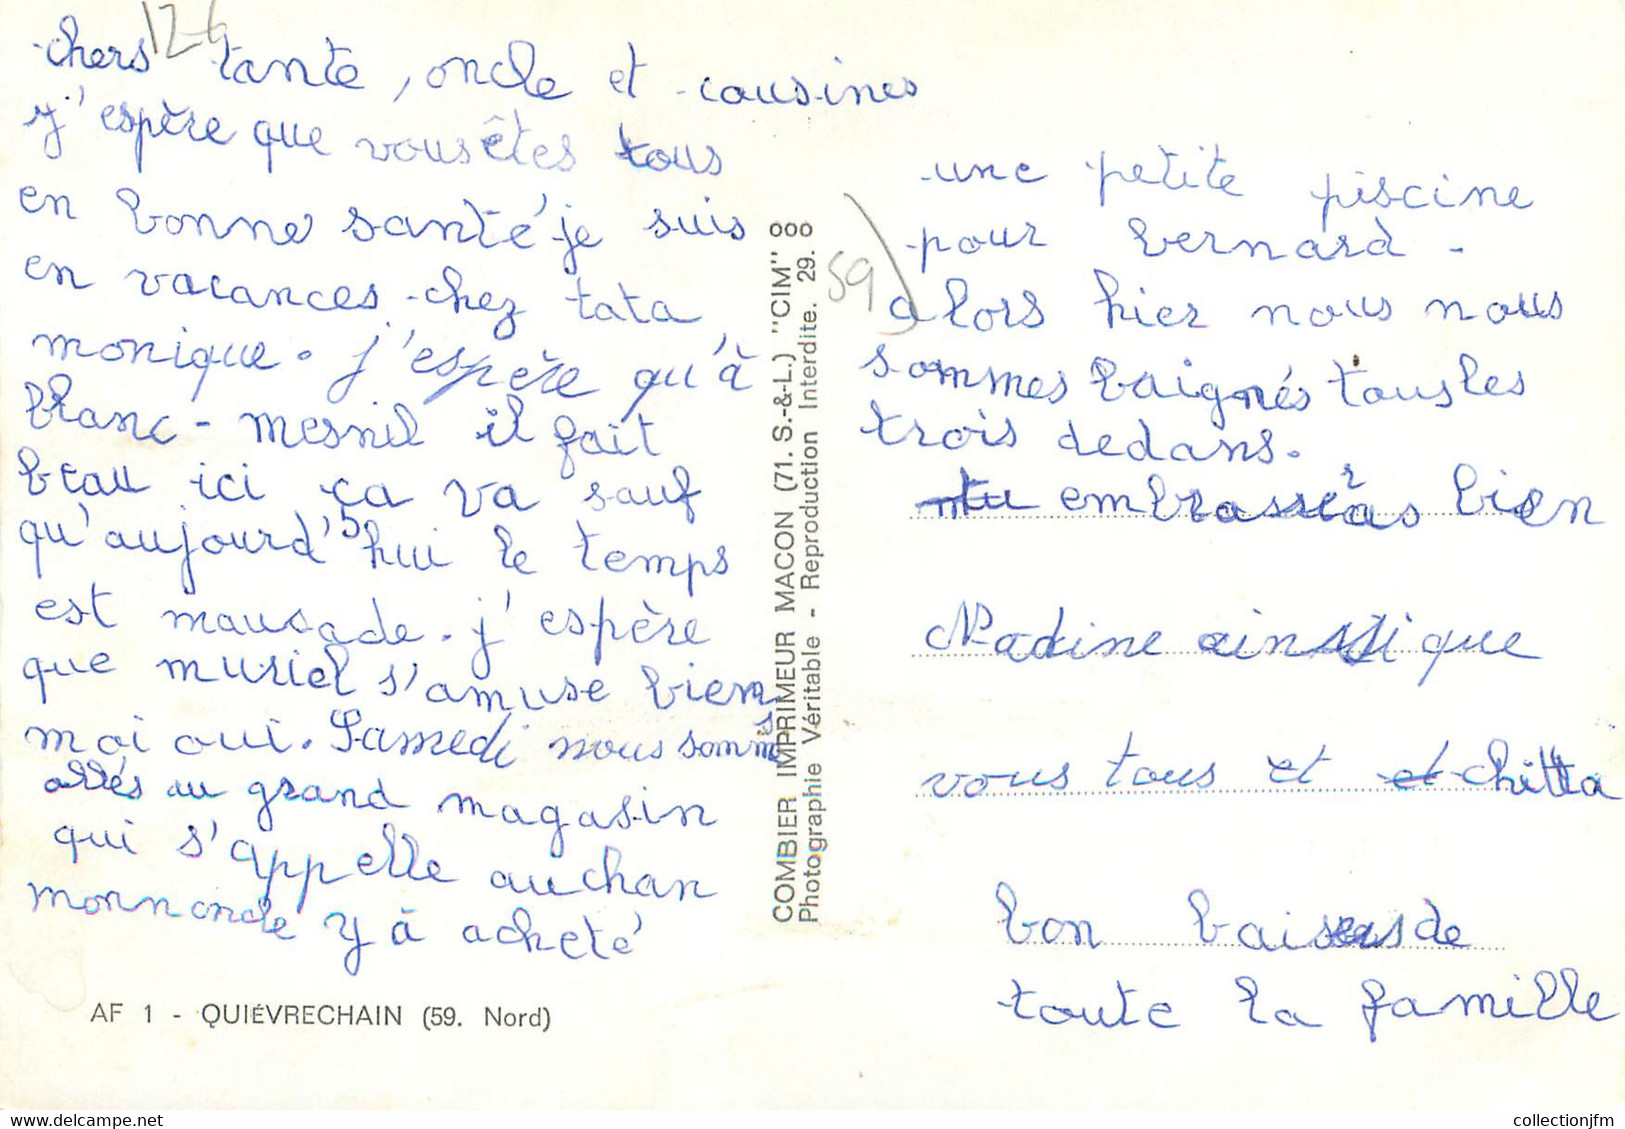 126
chers tante, oncle et cousines
j'espère que vous êtes tous
en bonne santé je suis
en vacances chez tata
monique. j'espère qu'à
blanc-mesnil il fait
beau ici ça va sauf
qu'aujourd'hui le temps
est mausade. j'espère
que muriel s'amuse bien
moi oui. Samedi nous sommes
allés au grand magasin
qui s'appelle auchan
monn oncle y à acheté
AF 1 - QUIÉVRECHAIN (59. Nord)
COMBIER IMPRIMEUR MACON (71. S.-&-L.) "CIM"
Photographie Véritable - Reproduction Interdite. 29. 88
59)
une petite piscine
pour bernard -
alors hier nous nous
sommes baignés tous les
trois dedans.
tu embrasseras bien
Nadine ainsi que
vous tous et et chitta
bon baisers de
toute la famille
collectionjfm